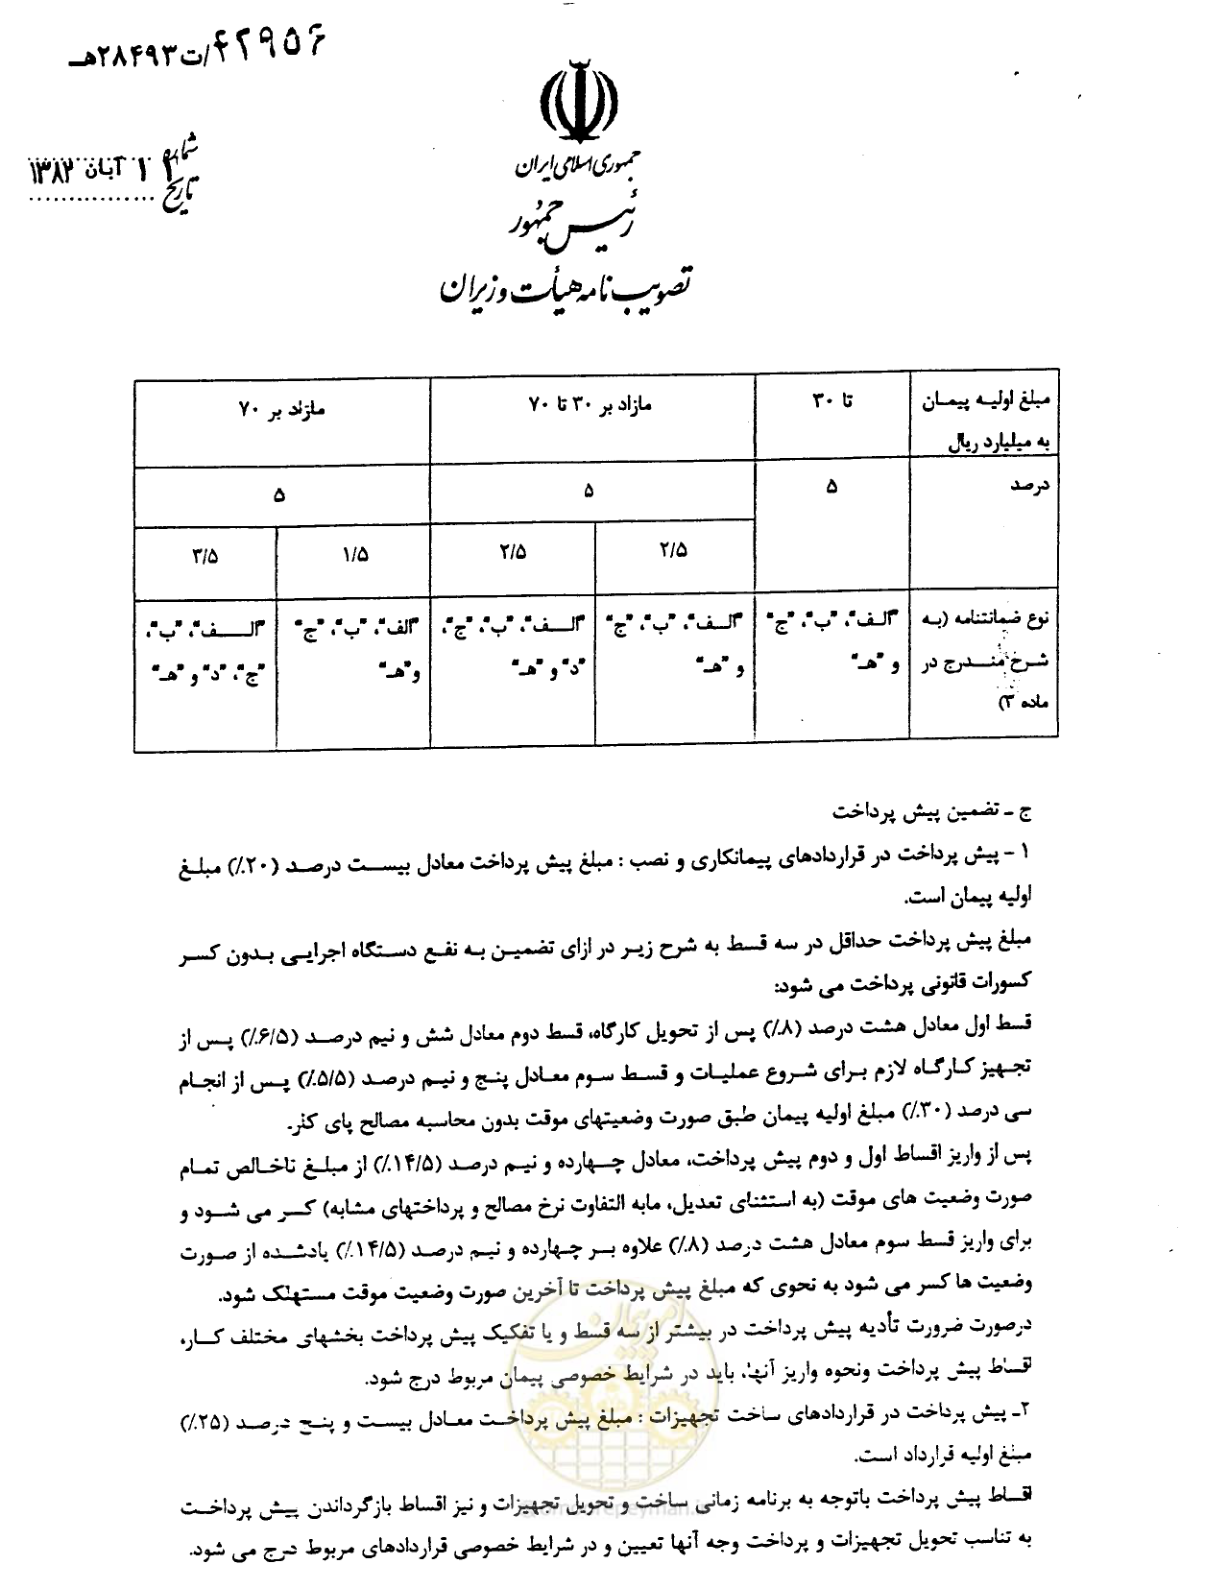 ۴۲۹۵۶/ت۲۸۴۹۳هـ
شماره
۱۱ آبان ۱۳۸۲
تاریخ
جمهوری اسلامی ایران
رئیس جمهور
تصویب نامه هیأت وزیران
مبلغ اولیـه پیمـان به میلیارد ریال
تا ۳۰
مازاد بر ۳۰ تا ۷۰
مازاد بر ۷۰
درصد
۵
۵
۵
۲/۵
۲/۵
۱/۵
۳/۵
نوع ضمانتنامه (بـه
شـرح منــدرج در
ماده ۳)
"الـف"، "ب"، "ج"
و "هـ"
"الــف"، "ب"، "ج"
و "هـ"
"الـــف"، "ب"، "ج"،
"د" و "هـ"
"الف"، "ب"، "ج"
و"هـ"
"الـــــف"، "ب"،
"ج"، "د" و "هـ"
ج ـ تضمین پیش پرداخت
۱ - پیش پرداخت در قراردادهای پیمانکاری و نصب : مبلغ پیش پرداخت معادل بیسـت درصـد (۲۰٪) مبلـغ
اولیه پیمان است.
مبلغ پیش پرداخت حداقل در سه قسط به شرح زیـر در ازای تضمیـن بـه نفـع دسـتگاه اجرایـی بـدون کسـر
کسورات قانونی پرداخت می شود:
قسط اول معادل هشت درصد (۸٪) پس از تحویل کارگاه، قسط دوم معادل شش و نیم درصـد (۶/۵٪) پـس از
تجهیز کـارگـاه لازم بـرای شـروع عملیـات و قسـط سوم معـادل پنج و نیـم درصد (۵/۵٪) پـس از انجـام
سی درصد (۳۰٪) مبلغ اولیه پیمان طبق صورت وضعیتهای موقت بدون محاسبه مصالح پای کار.
پس از واریز اقساط اول و دوم پیش پرداخت، معادل چـهارده و نیـم درصد (۱۴/۵٪) از مبلـغ ناخـالص تمـام
صورت وضعیت های موقت (به استثنای تعدیل، مابه التفاوت نرخ مصالح و پرداختهای مشابه) کسـر می شـود و
برای واریز قسط سوم معادل هشت درصد (۸٪) علاوه بـر چـهارده و نیـم درصـد (۱۴/۵٪) یادشـده از صـورت
وضعیت ها کسر می شود به نحوی که مبلغ پیش پرداخت تا آخرین صورت وضعیت موقت مستهلک شود.
درصورت ضرورت تأدیه پیش پرداخت در بیشتر از سه قسط و یا تفکیک پیش پرداخت بخشهای مختلف کـار،
اقساط پیش پرداخت ونحوه واریز آنها، باید در شرایط خصوصی پیمان مربوط درج شود.
۲ـ پیش پرداخت در قراردادهای ساخت تجهیزات : مبلغ پیش پرداخـت معـادل بیسـت و پنـج درصـد (۲۵٪)
مبلغ اولیه قرارداد است.
اقسـاط پیش پرداخت باتوجه به برنامه زمانی ساخت و تحویل تجهیزات و نیز اقساط بازگرداندن پیـش پرداخـت
به تناسب تحویل تجهیزات و پرداخت وجه آنها تعیین و در شرایط خصوصی قراردادهای مربوط درج می شود.